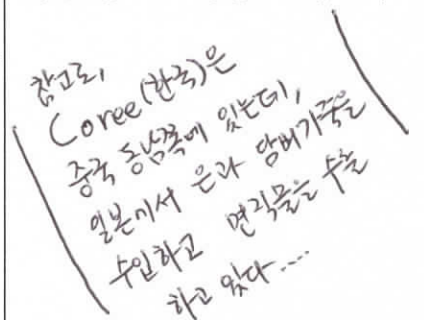 참고로,
Coree(한국)은
중국 동남쪽에 있는데,
일본에서 은과 담비가죽을
수입하고 면직물을 수출
하고 있다....